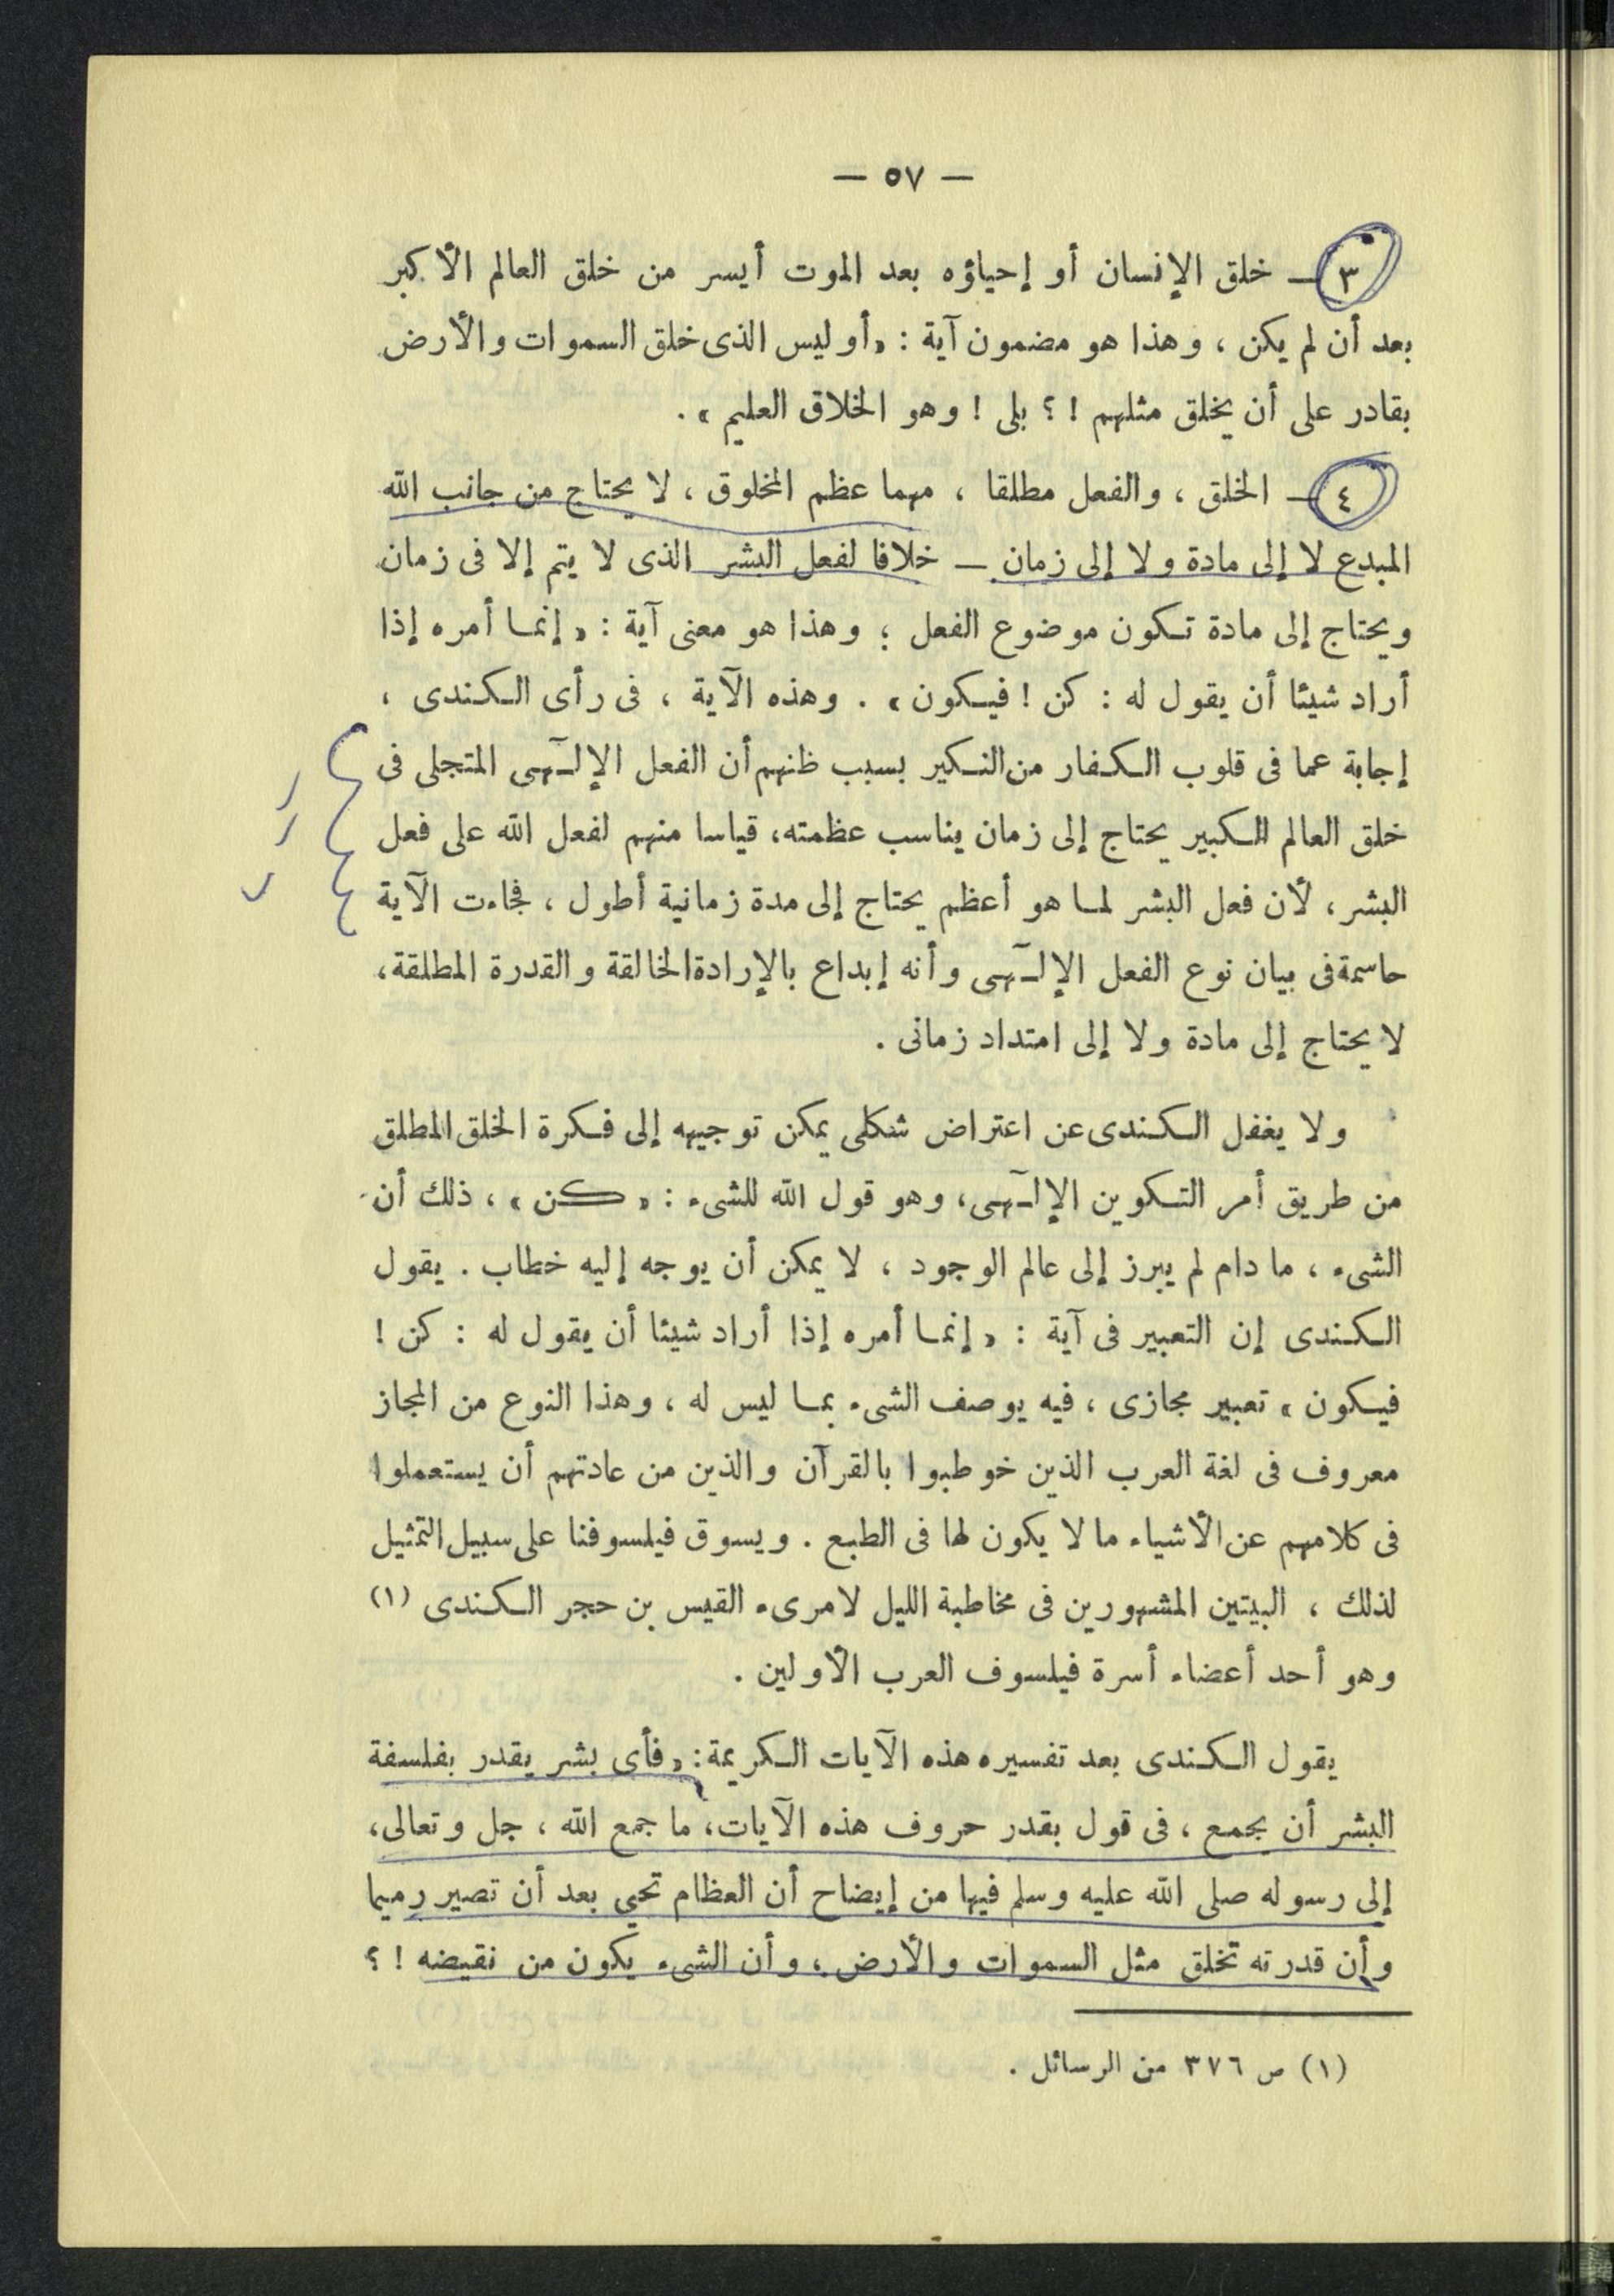 — ٥٧ —
٣ — خلق الإنسان أو إحياؤه بعد الموت أيسر من خلق العالم الأكبر
بعد أن لم يكن ، وهذا هو مضمون آية : « أو ليس الذى خلق السموات والأرض
بقادر على أن يخلق مثلهم ! ؟ بلى ! وهو الخلاق العليم » .
٤ — الخلق ، والفعل مطلقا ، مهما عظم المخلوق ، لا يحتاج من جانب الله
المبدع لا إلى مادة ولا إلى زمان — خلافا لفعل البشر الذى لا يتم إلا فى زمان
ويحتاج إلى مادة تكون موضوع الفعل ؛ وهذا هو معنى آية : « إنما أمره إذا
أراد شيئا أن يقول له : كن ! فيكون » . وهذه الآية ، فى رأى الكندى ،
إجابة عما فى قلوب الكفار من النكير بسبب ظنهم أن الفعل الإلٓهى المتجلى فى
خلق العالم الكبير يحتاج إلى زمان يناسب عظمته، قياسا منهم لفعل الله على فعل
البشر ، لأن فعل البشر لما هو أعظم يحتاج إلى مدة زمانية أطول ، فجاءت الآية
حاسمة فى بيان نوع الفعل الإلٓهى وأنه إبداع بالإرادة الخالقة والقدرة المطلقة ،
لا يحتاج إلى مادة ولا إلى امتداد زمانى .
ولا يغفل الكندى عن اعتراض شكلى يمكن توجيهه إلى فكرة الخلق المطلق
من طريق أمر التكوين الإلٓهى ، وهو قول الله للشىء : « كن » ، ذلك أن
الشىء ، ما دام لم يبرز إلى عالم الوجود ، لا يمكن أن يوجه إليه خطاب . يقول
الكندى إن التعبير فى آية : « إنما أمره إذا أراد شيئا أن يقول له : كن !
فيكون » تعبير مجازى ، فيه يوصف الشىء بما ليس له ، وهذا النوع من المجاز
معروف فى لغة العرب الذين خوطبوا بالقرآن والذين من عادتهم أن يستعملوا
فى كلامهم عن الأشياء ما لا يكون لها فى الطبع . ويسوق فيلسوفنا على سبيل التمثيل
لذلك ، البيتين المشهورين فى مخاطبة الليل لامرىء القيس بن حجر الكندى (١)
وهو أحد أعضاء أسرة فيلسوف العرب الأولين .
يقول الكندى بعد تفسيره هذه الآيات الكريمة : « فأى بشر يقدر بفلسفة
البشر أن يجمع ، فى قول بقدر حروف هذه الآيات ، ما جمع الله ، جل وتعالى ،
إلى رسوله صلى الله عليه وسلم فيها من إيضاح أن العظام تحيي بعد أن تصير رميما
وأن قدرته تخلق مثل السموات والأرض ، وأن الشىء يكون من نقيضه ! ؟
(١) ص ٣٧٦ من الرسائل .